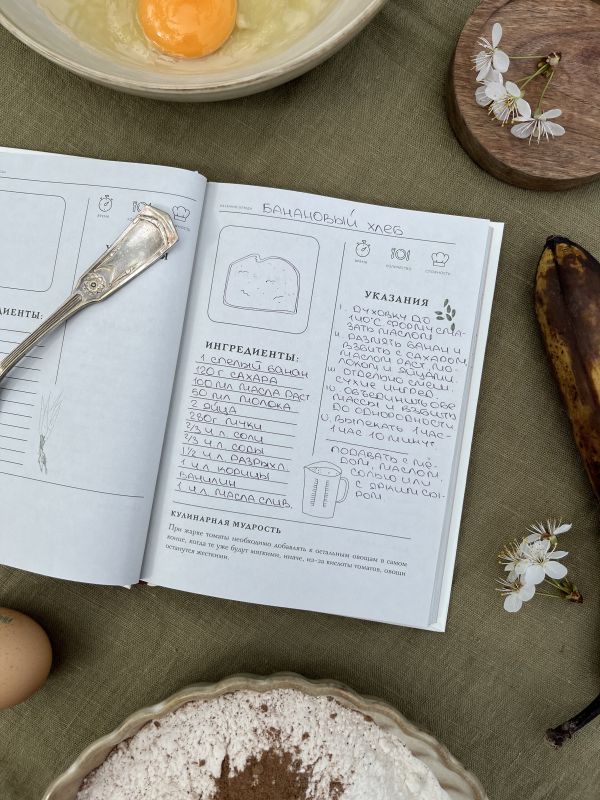 ИЕНТЫ:
ВРЕМЯ
НАЗВАНИЕ БЛЮДА
БАНАНОВЫЙ ХЛЕБ
ВРЕМЯ КОЛИЧЕСТВО СЛОЖНОСТЬ
ИНГРЕДИЕНТЫ:
1 СПЕЛЫЙ БАНАН
120 Г САХАРА
100 МЛ МАСЛА РАСТ
50 МЛ МОЛОКА
2 ЯЙЦА
280Г МУКИ
2/3 Ч.Л. СОЛИ
2/3 Ч.Л. СОДЫ
1 1/2 Ч.Л. РАЗРЫХЛ.
1 Ч.Л. КОРИЦЫ
ВАНИЛИН
1 Ч.Л. МАСЛА СЛИВ.
УКАЗАНИЯ
I. ДУХОВКУ ДО
ФОРМУ СМА-
ЗАТЬ МАСЛОМ
II. РАЗМЯТЬ БАНАН И
ВЗБИТЬ С САХАРОМ,
МАСЛОМ РАСТ, МО-
ЛОКОМ И ЯЙЦАМИ.
III. ОТДЕЛЬНО СМЕШ.
СУХИЕ ИНГРЕД.
IV. ОБЪЕДИНИТЬ ОБЕ
МАССЫ И ВЗБИТЬ
ДО ОДНОРОДНОСТИ
V. ВЫПЕКАТЬ 1 ЧАС-
1 ЧАС 10 МИНУТ
ПОДАВАТЬ С МЁ-
ДОМ, МАСЛОМ,
СОЛЬЮ ИЛИ
С ЯРКИМ СЫ-
РОМ
КУЛИНАРНАЯ МУДРОСТЬ
При жарке томаты необходимо добавлять к остальным овощам в самом
конце, когда те уже будут мягкими, иначе, из-за кислоты томатов, овощи
останутся жесткими.